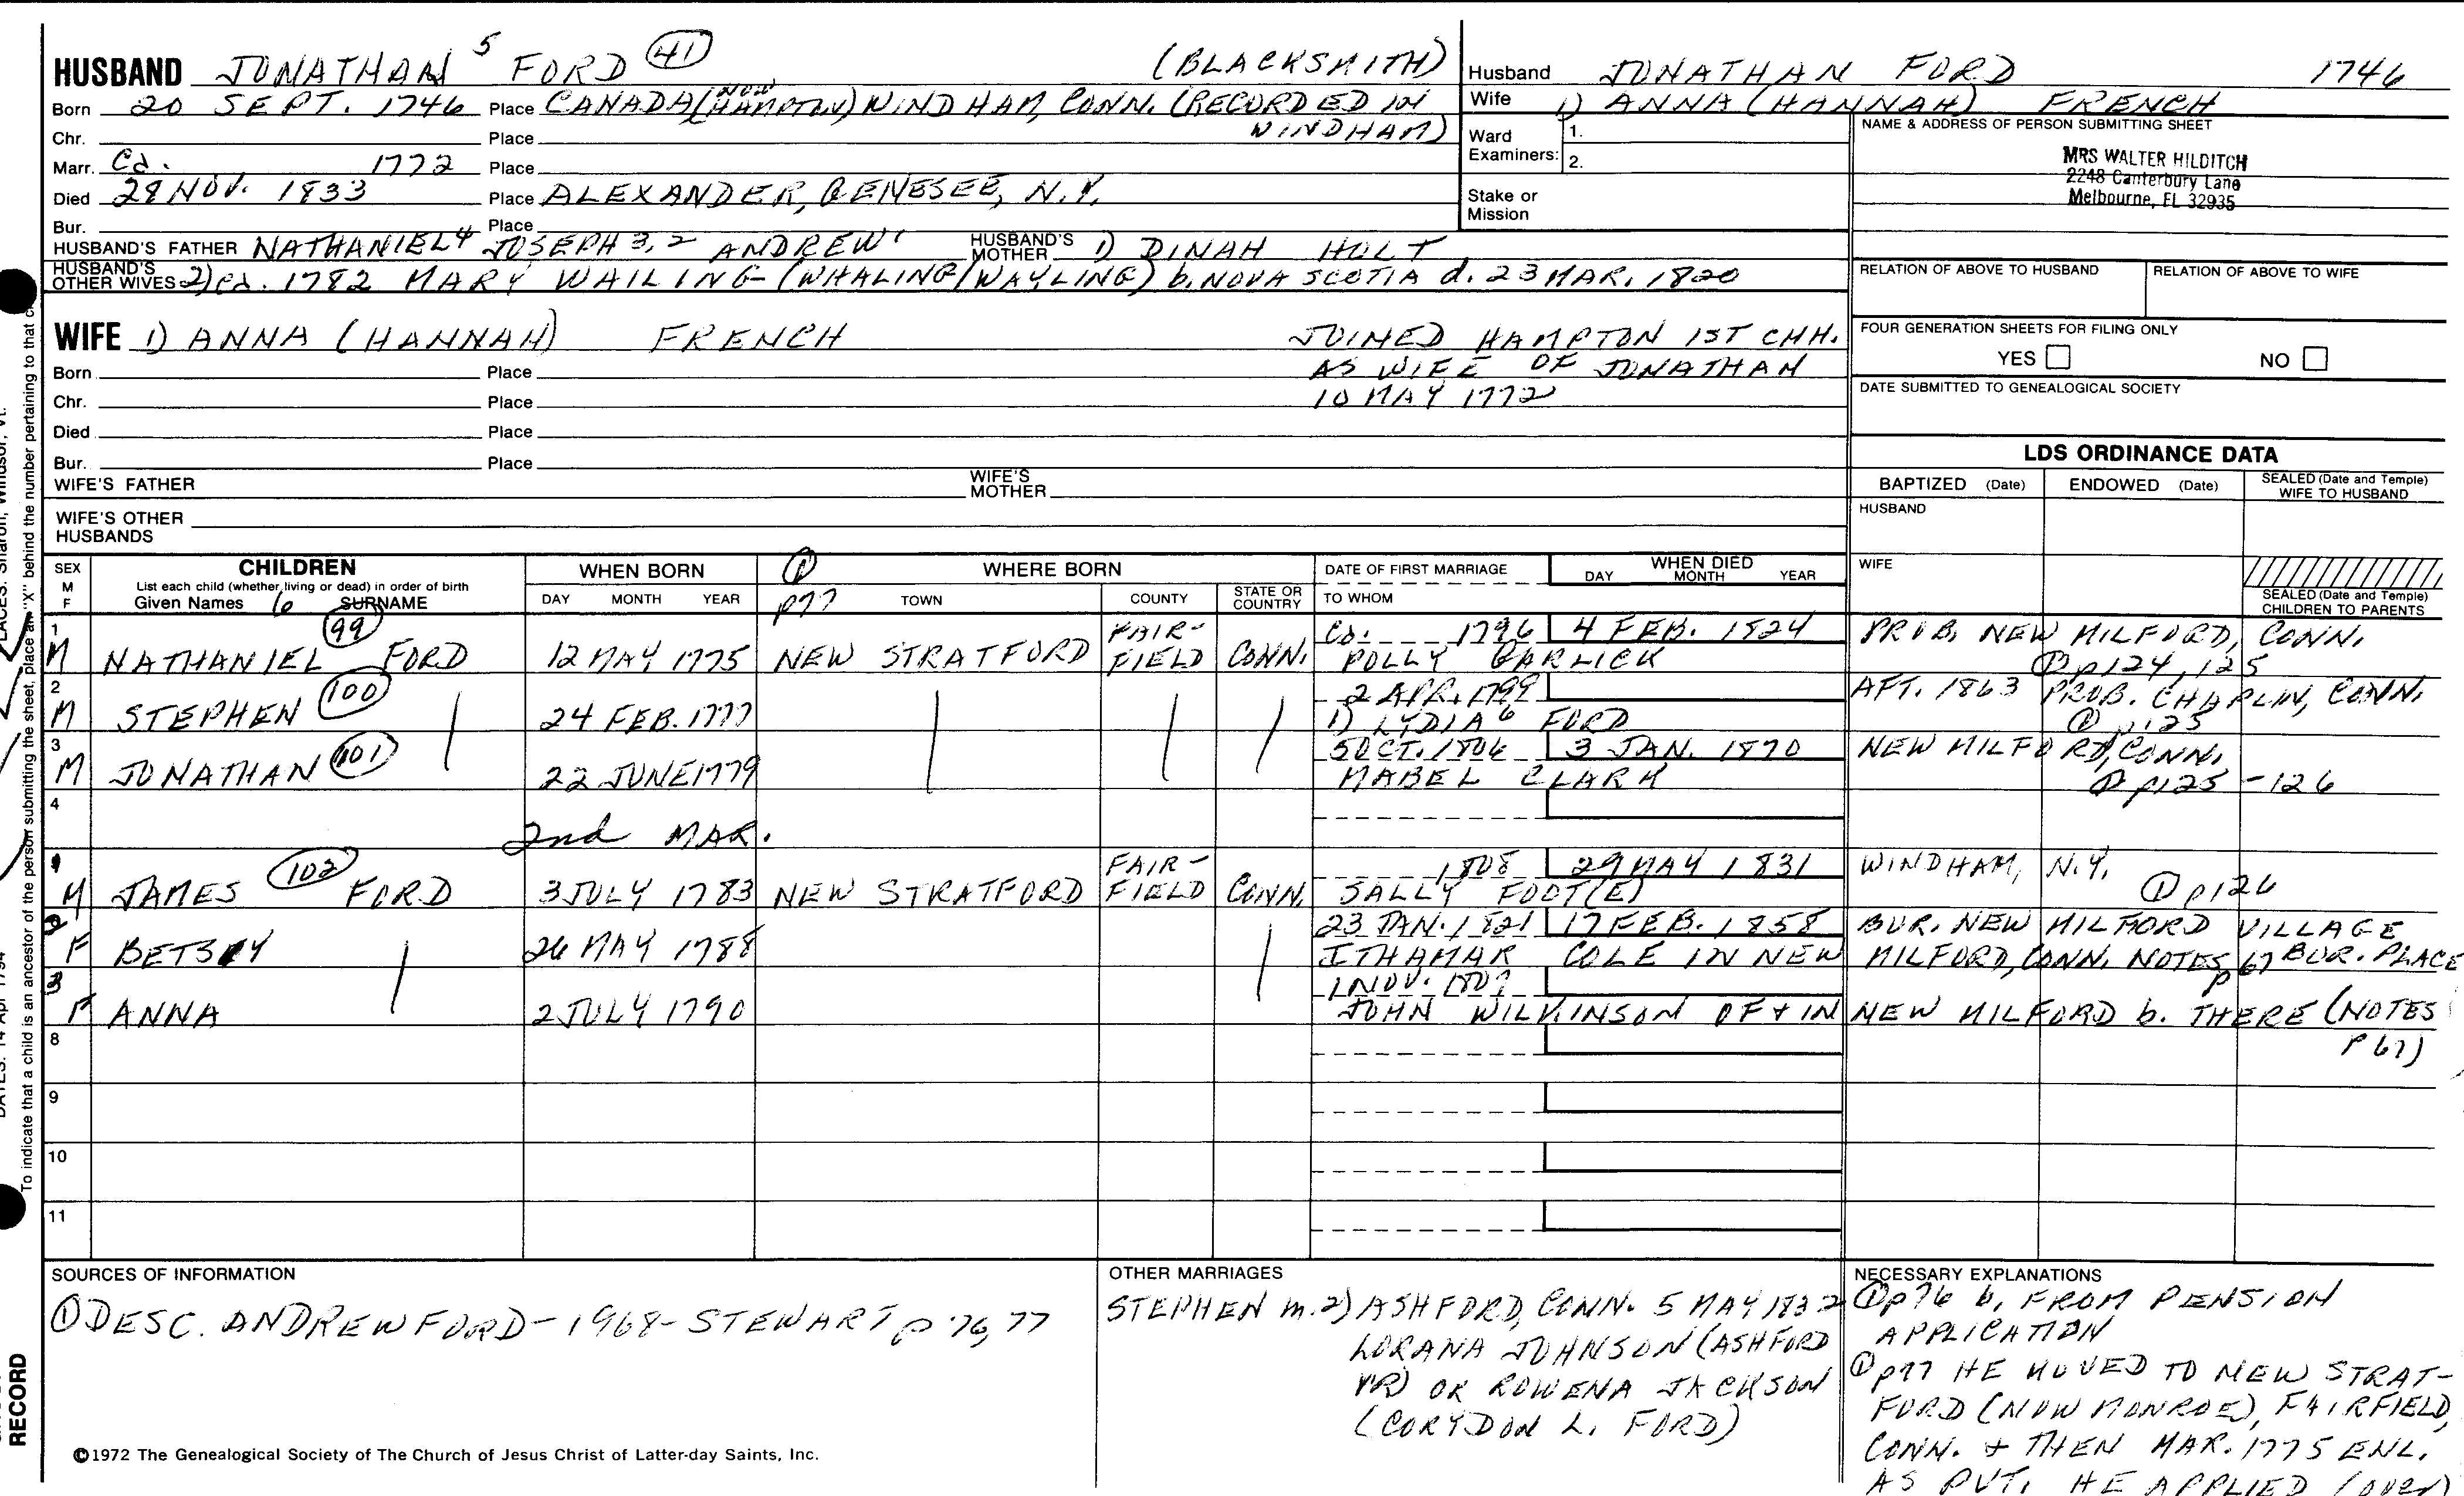 HUSBAND JONATHAN 5 FORD 41 (BLACKSMITH)
Born 20 SEPT. 1746 Place CANADA (NOW HAMPTON) WINDHAM, CONN. (RECORDED IN
WINDHAM)
Chr. Place
Marr. Ca. 1772 Place
Died 28 NOV. 1833 Place ALEXANDER, GENESEE, N.Y.
Bur. Place
HUSBAND'S FATHER NATHANIEL 4 JOSEPH 3,2 ANDREW 1 HUSBAND'S MOTHER 1) DINAH HOLT
HUSBAND'S OTHER WIVES 2) ca. 1782 MARY WAILING (WHALING/WAYLING) b. NOVA SCOTIA d. 23 MAR. 1820
Husband JONATHAN FORD 1746
Wife 1) ANNA (HANNAH) FRENCH
Ward Examiners: 1.
2.
Stake or Mission
NAME & ADDRESS OF PERSON SUBMITTING SHEET
MRS WALTER HILDITCH
2248 Canterbury Lane
Melbourne, FL 32935
RELATION OF ABOVE TO HUSBAND RELATION OF ABOVE TO WIFE
FOUR GENERATION SHEETS FOR FILING ONLY
YES NO
DATE SUBMITTED TO GENEALOGICAL SOCIETY
WIFE 1) ANNA (HANNAH) FRENCH JOINED HAMPTON 1ST CHH.
Born Place AS WIFE OF JONATHAN
Chr. Place 10 MAY 1772
Died Place
Bur. Place
WIFE'S FATHER WIFE'S MOTHER
WIFE'S OTHER HUSBANDS
LDS ORDINANCE DATA
BAPTIZED (Date) ENDOWED (Date) SEALED (Date and Temple) WIFE TO HUSBAND
HUSBAND
WIFE
SEALED (Date and Temple) CHILDREN TO PARENTS
SEX M F CHILDREN WHEN BORN 1 WHERE BORN DATE OF FIRST MARRIAGE WHEN DIED
List each child (whether living or dead) in order of birth
Given Names 6 SURNAME DAY MONTH YEAR p77 TOWN COUNTY STATE OR COUNTRY TO WHOM DAY MONTH YEAR
1 99 FAIR- Ca. 1796 4 FEB. 1824 PROB. NEW MILFORD, CONN.
M NATHANIEL FORD 12 MAY 1775 NEW STRATFORD FIELD CONN. POLLY GARLICK 1 p124,125
2 100 2 APR. 1799 AFT. 1863 PROB. CHAPLIN, CONN.
M STEPHEN 24 FEB. 1777 1) LYDIA 6 FORD 1 p125
3 101 5 OCT. 1806 3 JAN. 1870 NEW MILFORD, CONN.
M JONATHAN 22 JUNE 1779 MABEL CLARK 1 p125-126
4
2nd MAR.
1 102 FAIR- 1808 29 MAY 1831 WINDHAM, N.Y.
M JAMES FORD 3 JULY 1783 NEW STRATFORD FIELD CONN. SALLY FOOT(E) 1 p126
2 23 JAN. 1821 17 FEB. 1858 BUR. NEW MILFORD VILLAGE
F BETSEY 26 MAY 1788 ITHAMAR COLE IN NEW MILFORD, CONN. NOTES p67 BUR. PLACE
3 1 NOV. 1807
F ANNA 2 JULY 1790 JOHN WILKINSON OF + IN NEW MILFORD b. THERE (NOTES
8 P 67)
9
10
11
SOURCES OF INFORMATION
1 DESC. ANDREW FORD - 1968 - STEWART p 76, 77
©1972 The Genealogical Society of The Church of Jesus Christ of Latter-day Saints, Inc.
OTHER MARRIAGES
STEPHEN m. 2) ASHFORD, CONN. 5 MAY 1832
LORANA JOHNSON (ASHFORD
VR) OR ROWENA JACKSON
(CORYDON L. FORD)
NECESSARY EXPLANATIONS
1 p76 b. FROM PENSION
APPLICATION
1 p77 HE MOVED TO NEW STRAT-
FORD (NOW MONROE), FAIRFIELD,
CONN. + THEN MAR. 1775 ENL.
AS PVT. HE APPLIED (over)
To indicate that a child is an ancestor of the person submitting the sheet, place an "X" behind the number pertaining to that
PLACES: Sharon, Windsor, Vt.
DATES: 14 Apr 1794
RECORD